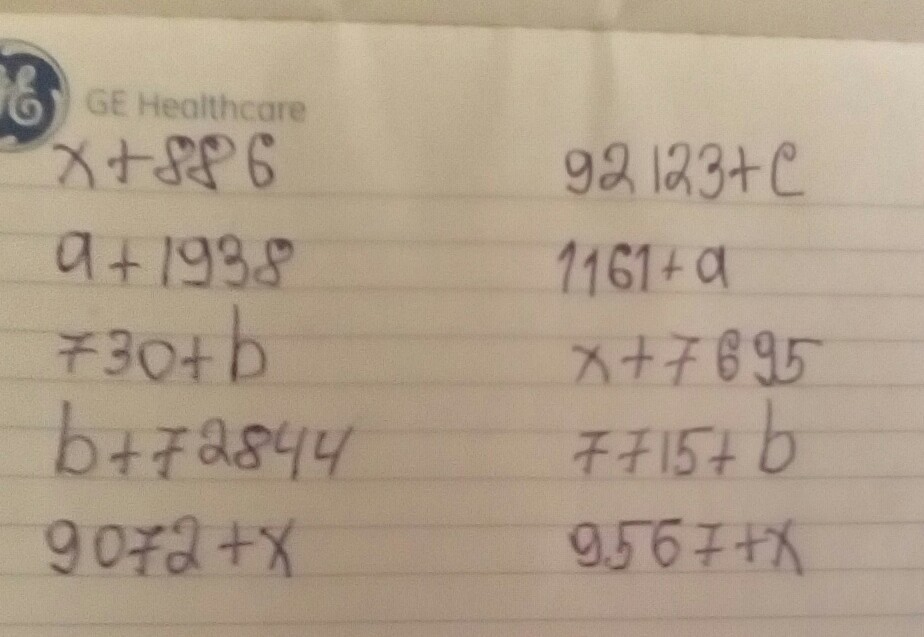 GE GE Healthcare
x+886 92123+c
a+1938 1161+a
730+b x+7695
b+72844 7715+b
9072+x 9567+x